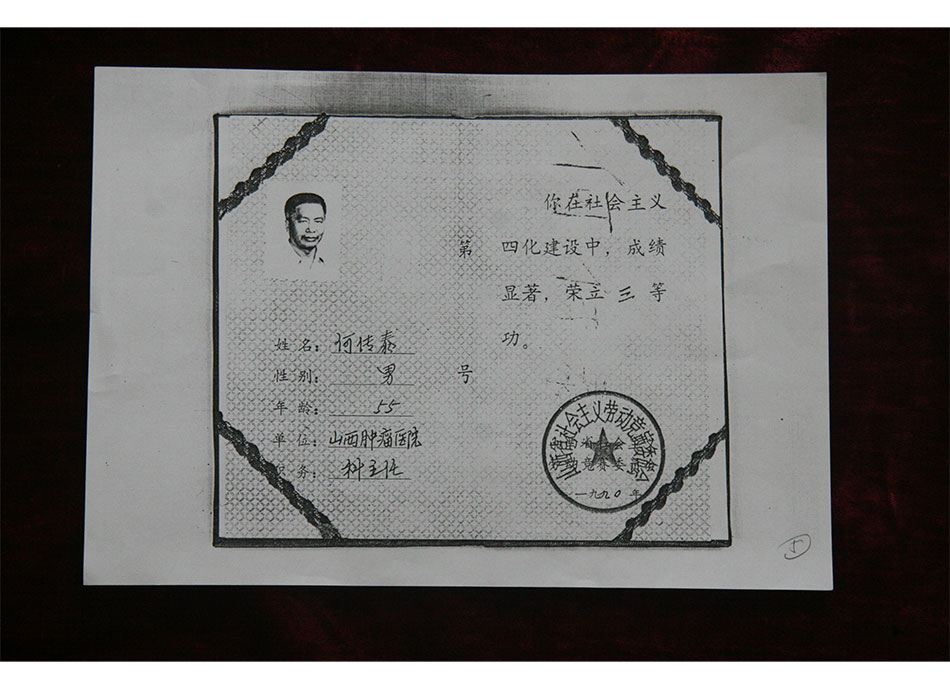 姓名：何传泰
性别：男
年龄：55
单位：山西肿瘤医院
职务：科主任
第
号
你在社会主义
四化建设中，成绩
显著，荣立三等
功。
山西省社会主义劳动竞赛委员会
一九九〇年
5